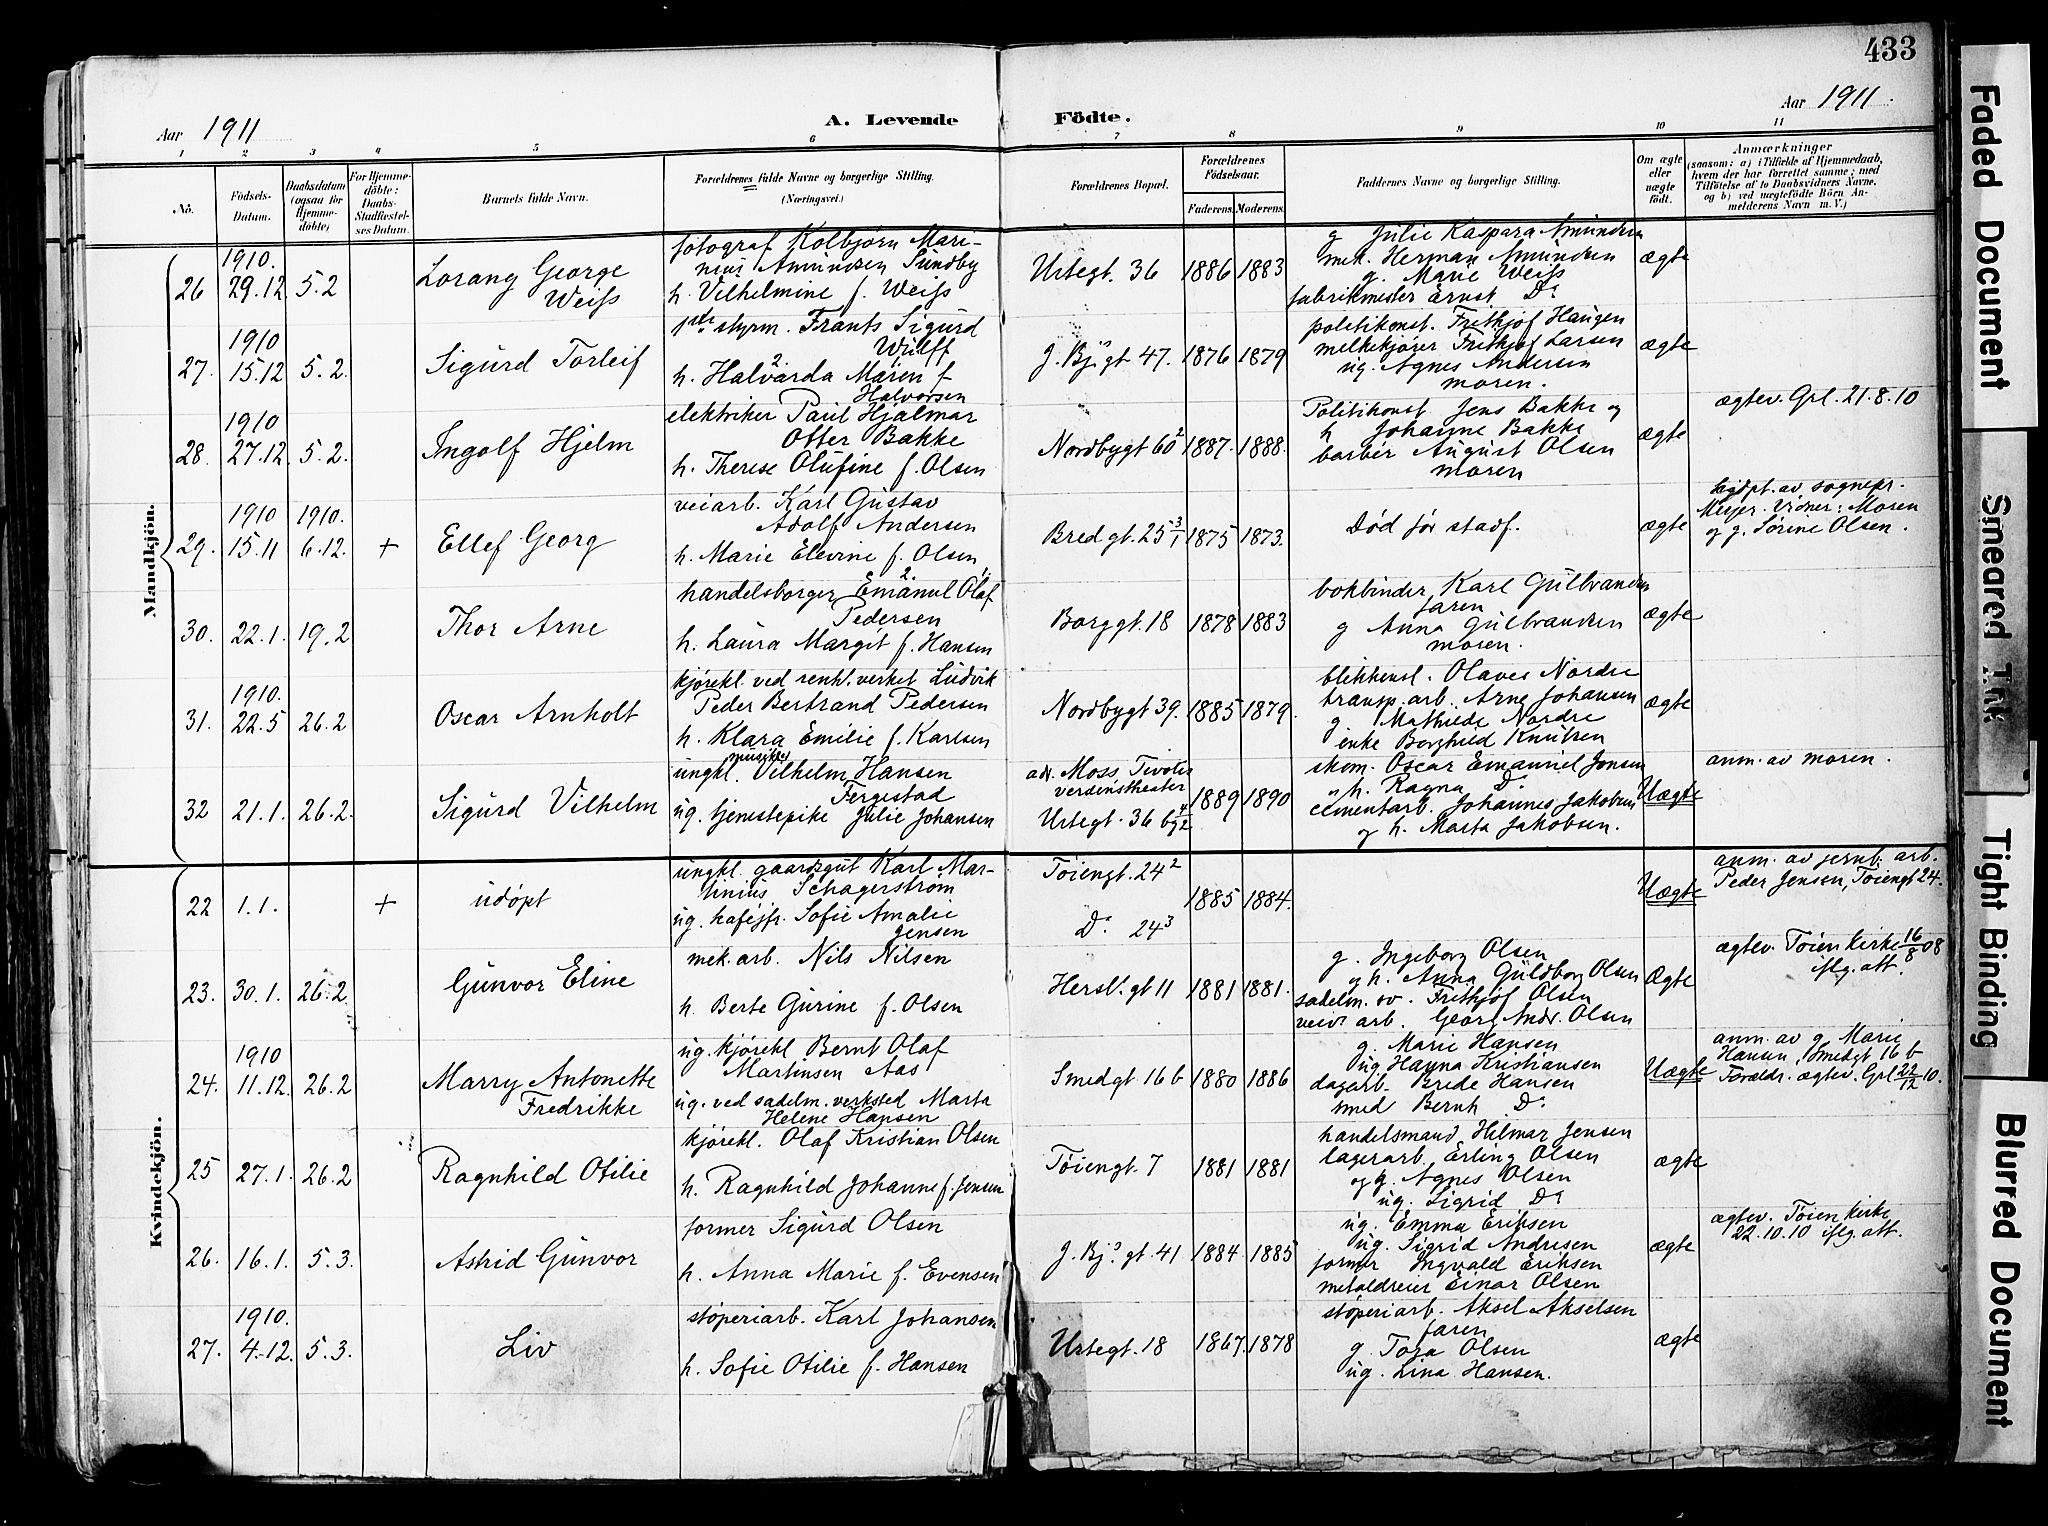 433
Aar 1911
A. Levende Födte.
Aar 1911.
1 2 3 4 5 6 7 8 9 10 11
Nö.
Födsels-Datum.
Daabsdatum (ogsaa for Hjemme-döbte)
For Hjemme-döbte: Daabs-Stadfæstel-ses Datum.
Barnets fulde Navn.
Forældrenes fulde Navne og borgerlige Stilling.
(Næringsvei.)
Forældrenes Bopæl.
Forældrenes Födselsaar.
Faderens. Moderens.
Faddernes Navne og borgerlige Stilling.
Om ægte eller uægte födt.
Anmærkninger
(saasom: a) i Tilfælde af Hjemmedaab,
hvem der har forrettet samme; med
Tilföielse af to Daabsvidners Navne.
og b) ved uægtefödte Börn An-
melderens Navn m. V.)
Mandkjön.
26 1910. 29.12 5.2
Lorang George
Weiss
fotograf Kolbjørn Mari-
nius Amundsen Sundby
h. Vilhelmine f. Weiss
Urtegt. 36 1886 1883
g Julie Kaspara Amundsen
mek. Herman Amundsen
g. Marie Weiss
fabrikmester Ernst Do
ægte
27. 1910 15.12 5.2.
Sigurd Torleif
1ste styrm. Frants Sigurd
Wulff
h. Halvarda Maren f
Halvorsen
J. Bj.s gt 47. 1876 1879
politikonst. Frithjof Haugen
melkekjører Frithjof Larsen
ug. Agnes Andersen
moren.
ægte
28. 1910 27.12 5.2.
Ingolf Hjelm
elektriker Paul Hjalmar
Otter Bakke
h. Therese Olufine f. Olsen
Nordbygt 60 2 1887. 1888.
Politikonst. Jens Bakke og
h Johanne Bakke
barber August Olsen
moren
ægte
ægtev. Grl. 21.8.10
29. 1910 15.11 1910. 6.12. +
Ellef Georg
veiarb. Karl Gustav
Adolf Andersen
h. Marie Elevine f. Olsen
Bredgt. 25 3/1 1875 1873.
Død før stadf.
ægte
hjdpt. av sognepr.
Meyer. Vidner: Moren
og g. Sørine Olsen.
30. 22.1. 19.2
Thor Arne
handelsborger Emanuel Olaf
Pedersen
h. Laura Margit f. Hansen
Borggt. 18 1878 1883
bokbinder Karl Gulbrandsen
faren
g Anna Gulbrandsen
moren.
ægte
31. 1910. 22.5 26.2
Oscar Arnholt
kjørekl. ved renh. verket Ludvik
Peder Bertrand Pedersen
h. Klara Emilie f. Karlsen
Nordbygt 39. 1885 1879.
blikkensl. Olaves Nordre
transp. arb. Arne Johansen
g. Mathilde Nordre
enke Borghild Knutsen
ægte
32 21.1. 26.2.
Sigurd Vilhelm
musiker
ungkl. Vilhelm Hansen
Fergestad
ug. tjenestepike Julie Johansen
adr. Moss, Tivolis
verdenstheater
Urtegt. 36 b 4/2 1889 1890
skom. Oscar Emanuel Jonsen
" h. Ragna Do
cementarb. Johannes Jakobsen
og h. Marta Jakobsen.
Uægte
anm. av moren.
Kvindekjön.
22 1.1. +
udøpt
ungkl. gaardsgut Karl Mar-
tinius Schagerström
ug. kaféjfr. Sofie Amalie
Jensen
Tøiengt. 24 2
Do 24 3
1885 1884.
Uægte
anm. av jernb. arb.
Peder Jensen, Tøiengt 24.
23. 30.1. 26.2.
Gunvor Eline
mek. arb. Nils Nilsen
h. Berte Gurine f. Olsen
Hersl.gt 11 1881 1881.
g. Ingeborg Olsen
og h. Anna Guldborg Olsen
sadelm. sv. Frithjof Olsen
veiv arb. Georg Andr. Olsen
Ægte
ægtev. Tøien kirke 16/8 08
iflg. att.
24. 1910 11.12. 26.2
Marry Antonette
Fredrikke
ug. kjørekl Bernt Olaf
Martinsen Aas
ug. ved sadelm. verksted Marta
Helene Hansen
Smedgt 16 b 1880 1886
g. Marie Hansen
ug. Hanna Kristiansen
dagarb. Brede Hansen
smed Bernh Do
Uægte
anm. av g. Marie
Hansen, Smedgt 16 b
Forældr. ægtev. Grl 22/12 10.
25 27.1. 26.2
Ragnhild Otilie
kjørekl. Olaf Kristian Olsen
h. Ragnhild Johanne f. Jensen
Tøiengt. 7 1881 1881
handelsmand Hilmar Jensen
lagerarb. Erling Olsen
og g. Agnes Olsen
ug. Sigrid Do
ægte
26. 16.1. 5.3.
Astrid Gunvor
former Sigurd Olsen
h. Anna Marie f. Evensen
J. Bj.s gt. 41 1884. 1885
ug. Emma Eriksen
ug. Sigrid Andresen
former Ingvald Eriksen
metaldreier Einar Olsen
ægte
ægtev. Tøien kirke
22.10.10 iflg. att.
27. 1910. 4.12. 5.3.
Liv
støperiarb. Karl Johansen
h. Sofie Otilie f. Hansen
Urtegt. 18 1867. 1878
støperiarb. Aksel Akselsen
faren
g. Tora Olsen
ug. Lina Hansen.
ægte
Faded Document
Smeared Ink
Tight Binding
Blurred Document